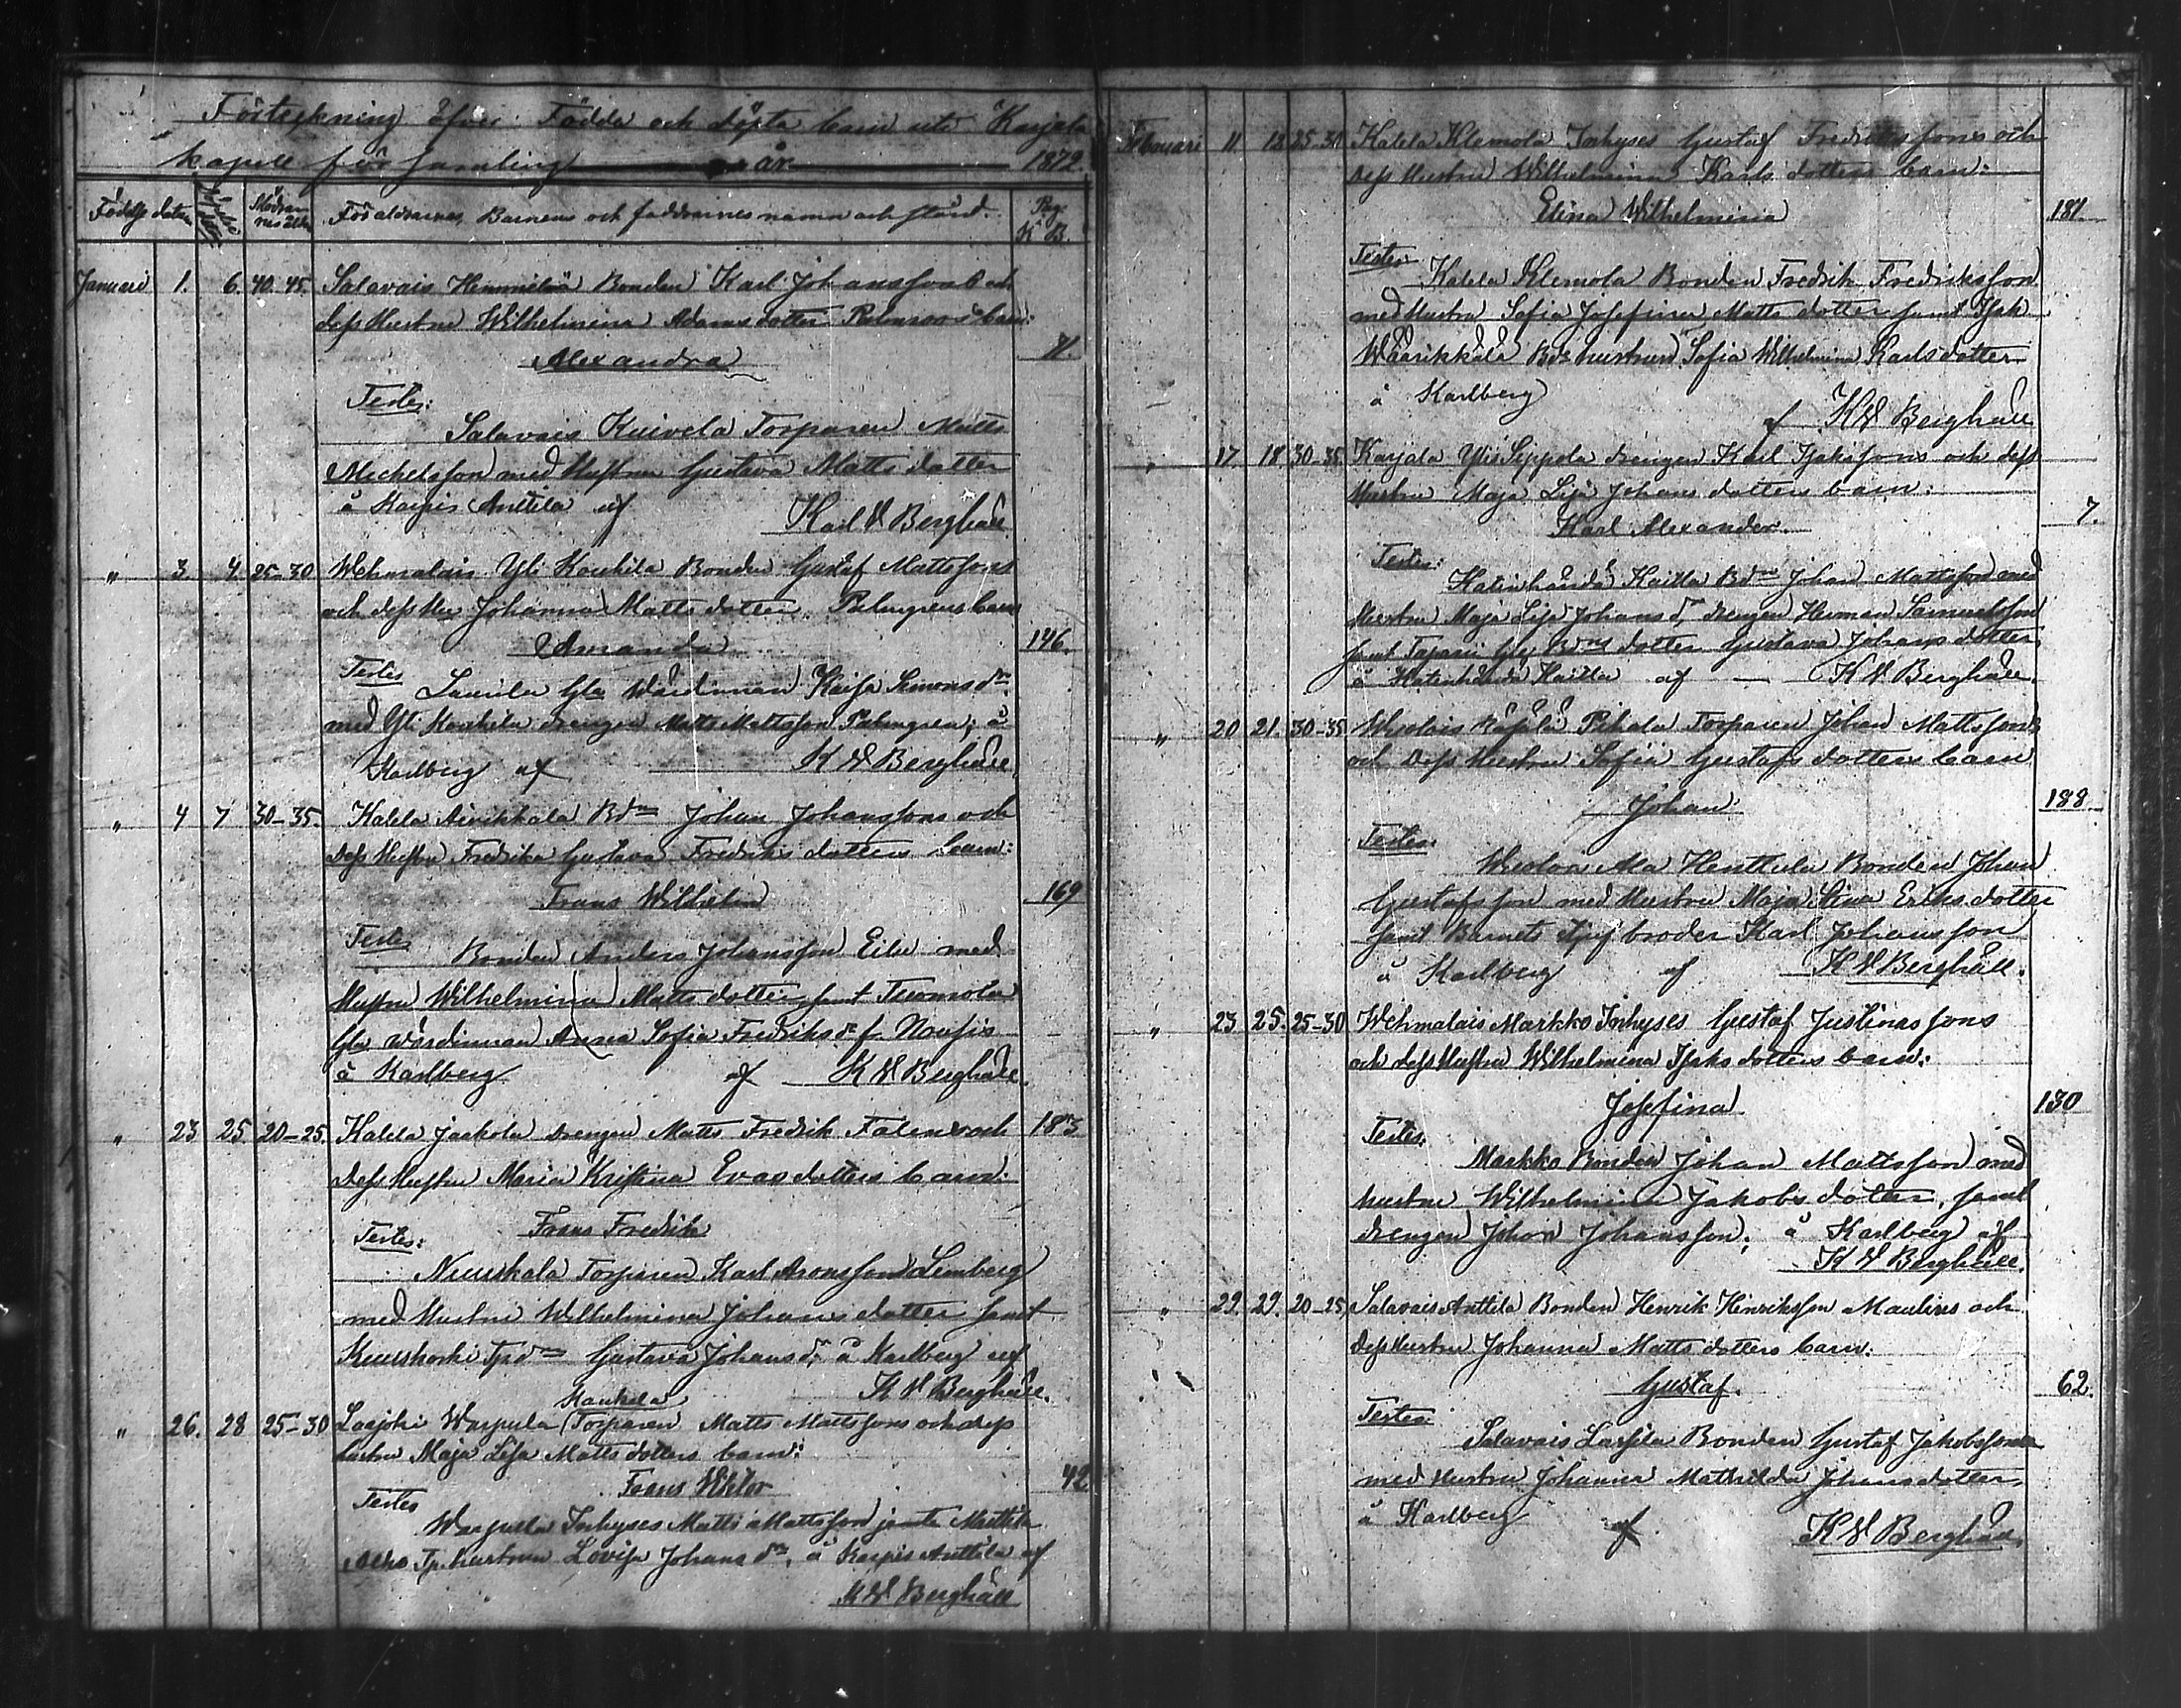 Förteckning öfver Födda och döpta barn uti Karjala
kapell församling år 1872.
Födelse datum
Mödrarnes ålder
Föräldrarnes, Barnens och faddrarnes namn och stånd.
Pag. K. B.
Januari 1. 6. 40-45. Salavais Hemmilä Bonden Karl Johanssons och
dess Hustru Wilhelmina Adams dotter Palmroos barn:
Alexandra
Testes:
Salavais Kuivela Torparen Matts
Michelsson med Hustru Gustava Matts dotter
å Karpis Anttila af Karl W Berghäll
" 3. 4. 25-30 Wehmalais Yli Koukila Bonden Gustaf Mattssons
och dess Hu Johanna Matts dotter Palmgrens barn
Amanda 146.
Testes
Laurila Gla Wärdinnan Kaisa Simons dr
med Yli Koukila drengen Matts Mattsson Palmgren; å
Karlberg af K W Berghäll
" 4 7 30-35. Kalela Äirikkala Bdn Johan Johanssons och
dess Hustru Fredrika Gustava Fredriks dotters barn:
Frans Wilhelm 169
Testes
Bonden Anders Johansson Eilu med
Hustru Wilhelmina Matts dotter samt Tuomola
Gla wärdinnan Anna Sofia Fredriks dr fr. Nousis
å Karlberg af K W Berghäll.
" 23 25 20-25. Kalela Jaakola drengen Matts Fredrik Falens och 183
dess Hustru Maria Kristina Evas dotters barn:
Frans Fredrik
Testes:
Nuuskala Torparen Karl Aronsson Lemberg
med Hustru Wilhelmina Johans dotter samt
Gustava Johans dr, å Karlberg af
K W Berghäll.
Haukela
" 26. 28 25-30 Laajoki Warpula Torparen Matts Mattssons och dess
hustru Maja Lisa Matts dotters barn:
Frans Viktor 42
Testes
Warpula Inhyses Matts Mattsson jemte
Tp. hustrun Lovisa Johans dr, å Karpis Anttila af
K W Berghäll
Februari 11 12 25-30 Kalela Klemola Inhyses Gustaf Fredrikssons och
dess Hustru Wilhelmina Karls dotters barn:
Elina Wilhelmina 181
Testes
Kalela Klemola Bonden Fredrik Fredriksson
med Hustru Sofia Josefina Matts dotter samt Isak
Wäärikkälä Bds hustrun Sofia Wilhelmina Karlsdotter
å Karlberg
af K W Berghäll
" 17 18 30-35 Karjala Ylis Seppola drengen Karl Isakssons och dess
Hustru Maja Lisa Johans dotters barn:
Karl Alexander 7.
Testes:
Katinhäntä Kaitla Bdn Johan Mattsson med
Hustru Maja Lisa Johans dr, drengen Herman Samuelsson
samt Tapani Bdns dotter Gustava Johans dotter
å Katinhäntä Kaitla af K W Berghäll.
" 20 21. 30-35 Pihala Torparen Johan Mattssons
och dess Hustru Sofia Gustafs dotters barn
Johan 188
Testes:
Ala Henttula Bonden Johan
Gustafsson med Hustru Maja Stina Eriks dotter
samt Barnets broder Karl Johansson
å Karlberg af K W Berghäll.
" 23 25. 25-30 Wehmalais Markko Inhyses Gustaf Justinassons
och dess Hustru Wilhelmina Isaks dotters barn:
Josefina 130
Testes:
Markko Bonden Johan Mattsson med
hustru Wilhelmina Jakobs dotter, samt
drengen Johan Johansson; å Karlberg af
K W Berghäll.
" 29. 29. 20-25, Salavais Anttila Bonden Henrik Hinriksson Maulins och
dess Hustru Johanna Matts dotters barn.
Gustaf. 62.
Testes:
Salavais Lassila Bonden Gustaf Jakobsson
med Hustru Johanna Mathilda Johans dotter,
å Karlberg af K W Berghäll